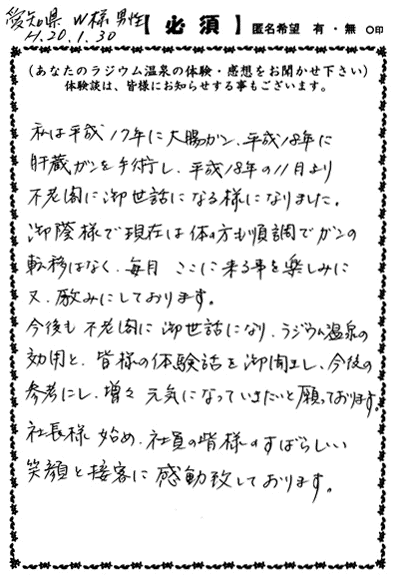 愛知県 W様 男性
H.20.1.30
【必須】 匿名希望 有・無 ○印
(あなたのラジウム温泉の体験・感想をお聞かせ下さい)
体験談は、皆様にお知らせする事もございます。
私は平成17年に大腸ガン、平成18年に
肝蔵ガンを手術し、平成18年の11月より
不老閣に御世話になる様になりました。
御蔭様で現在は体の方も順調でガンの
転移はなく、毎月 ここに来る事を楽しみに
又、励みにしております。
今後も 不老閣に御世話になり、ラジウム温泉の
効用と、皆様の体験話を御聞きし、今後の
参考にし、増々 元気になっていきたいと願っております。
社長様 始め、社員の皆様のすばらしい
笑顔と接客に 感動致しております。